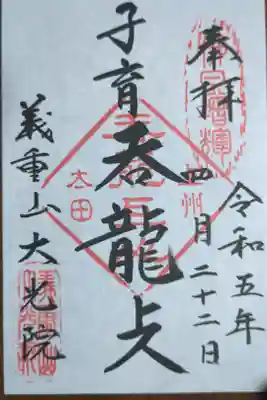 奉拝
令和五年
四月二十二日
上州
太田
子育呑龍上人
義重山大光院